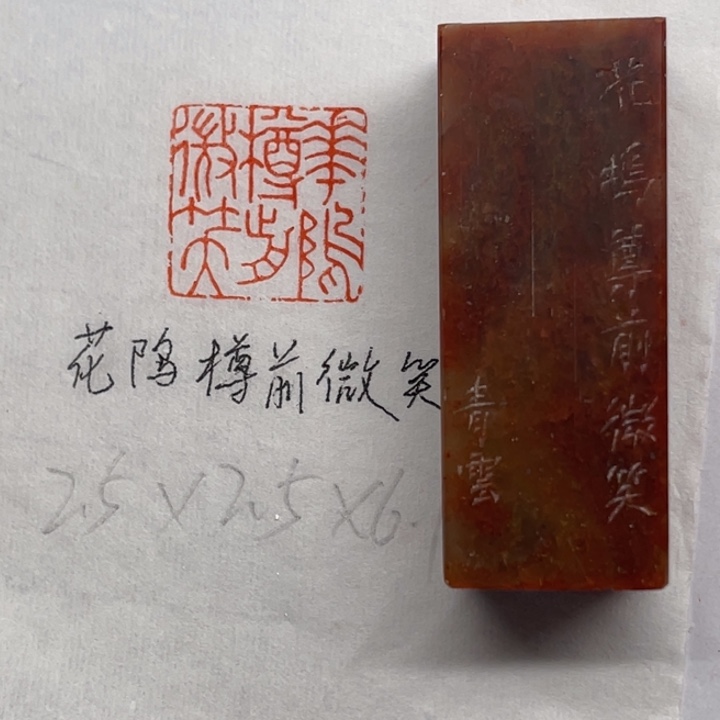 華隖
樽前
微笑
花隖樽前微笑
2.5×2.5×6.
花塢尊前微笑
青雲